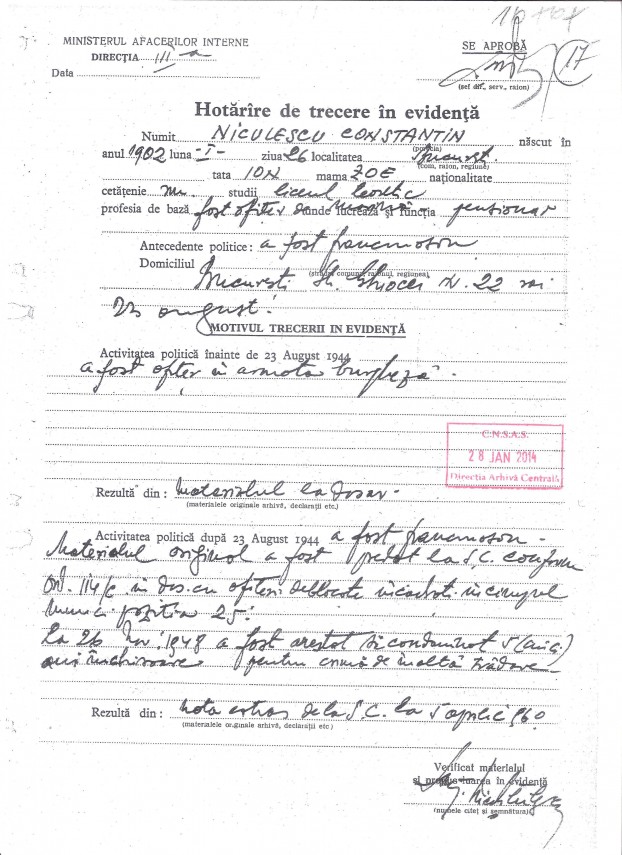 MINISTERUL AFACERILOR INTERNE
DIRECȚIA III-a
Data
SE APROBĂ
(șef dir., serv., raion)
17
Hotărîre de trecere în evidență
Numit NICULESCU CONSTANTIN născut în
(porecla)
anul 1902 luna -I- ziua 26 localitatea București
(com, raion, regiune)
tata ION mama ZOE naționalitate
cetățenie studii liceul teoretic
profesia de bază fost ofițer unde lucrează și funcția pensionar
Antecedente politice: a fost francmason
Domiciliul București Str. nr. 22
(strada, comuna, raionul, regiunea)
23 august.
MOTIVUL TRECERII IN EVIDENȚĂ
Activitatea politică înainte de 23 August 1944
a fost ofițer în armata burgheză.
C.N.S.A.S.
28 JAN 2014
Direcția Arhivă Centrală
Rezultă din: Materialul la dosar.
(materialele originale arhivă, declarații etc.)
Activitatea politică după 23 August 1944 a fost francmason.
Materialul original a fost predat la S.C. conform
Ord. 114/ în dos. cu ofițeri deblocați
poziția 25.
La 26 Nov. 1948 a fost arestat și condamnat 5 (cinci)
ani închisoare pentru crimă de înaltă trădare
Rezultă din: Nota extras de la S.C. la 5 aprilie 960
(materialele originale arhivă, declarații etc)
Verificat materialul
și luarea în evidență
(numele citeț și semnătura)